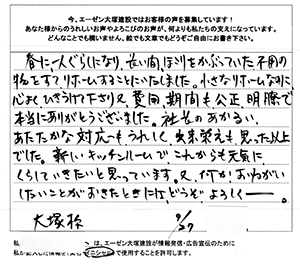 今、エーゼン大塚建設ではお客様の声を募集しています！
あなた様からのうれしいお声やよろこびのお声が、何よりも私たちの支えになっています。
どんなことでも構いません、絵でも文章でもどうぞご自由にお書き下さい。
春に一人ぐらしになり、長い間、ほこりをかぶっていた不用の
物をすてリホームすることにいたしました。小さなリホームなのに
心よくひきうけて下さり又、費用、期間も公正、明瞭で
本当にありがとうございました。社長のあかるい、
あたたかな対応もうれしく、出来栄えも思った以上
でした。新しいキッチンルームで、これからも元気に
くらしていきたいと思っています。又、何かおねがい
したいことがおきたときには、どうぞ よろしく ー。
大塚 様
私 は、エーゼン大塚建設が情報発信・広告宣伝のために
私が記入した情報を イニシャル で使用することを許可します。